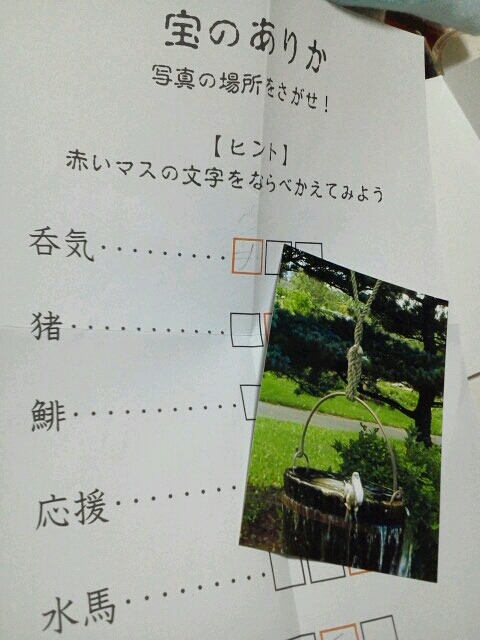 宝のありか
写真の場所をさがせ!
【ヒント】
赤いマスの文字をならべかえてみよう
呑気・・・・・・・・・
猪・・・・・・・・・・・
鯡・・・・・・・・・・・
応援・・・・・・・・・
水馬・・・・・・・・・